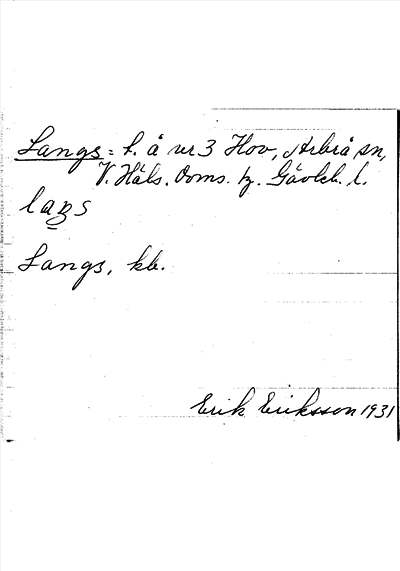 Langs = f. å nr 3 Hov, Arbrå sn,
V. Häls. Doms. tg. Gävleb. l.
laŋs
Langs, kb.
Erik Eriksson 1931